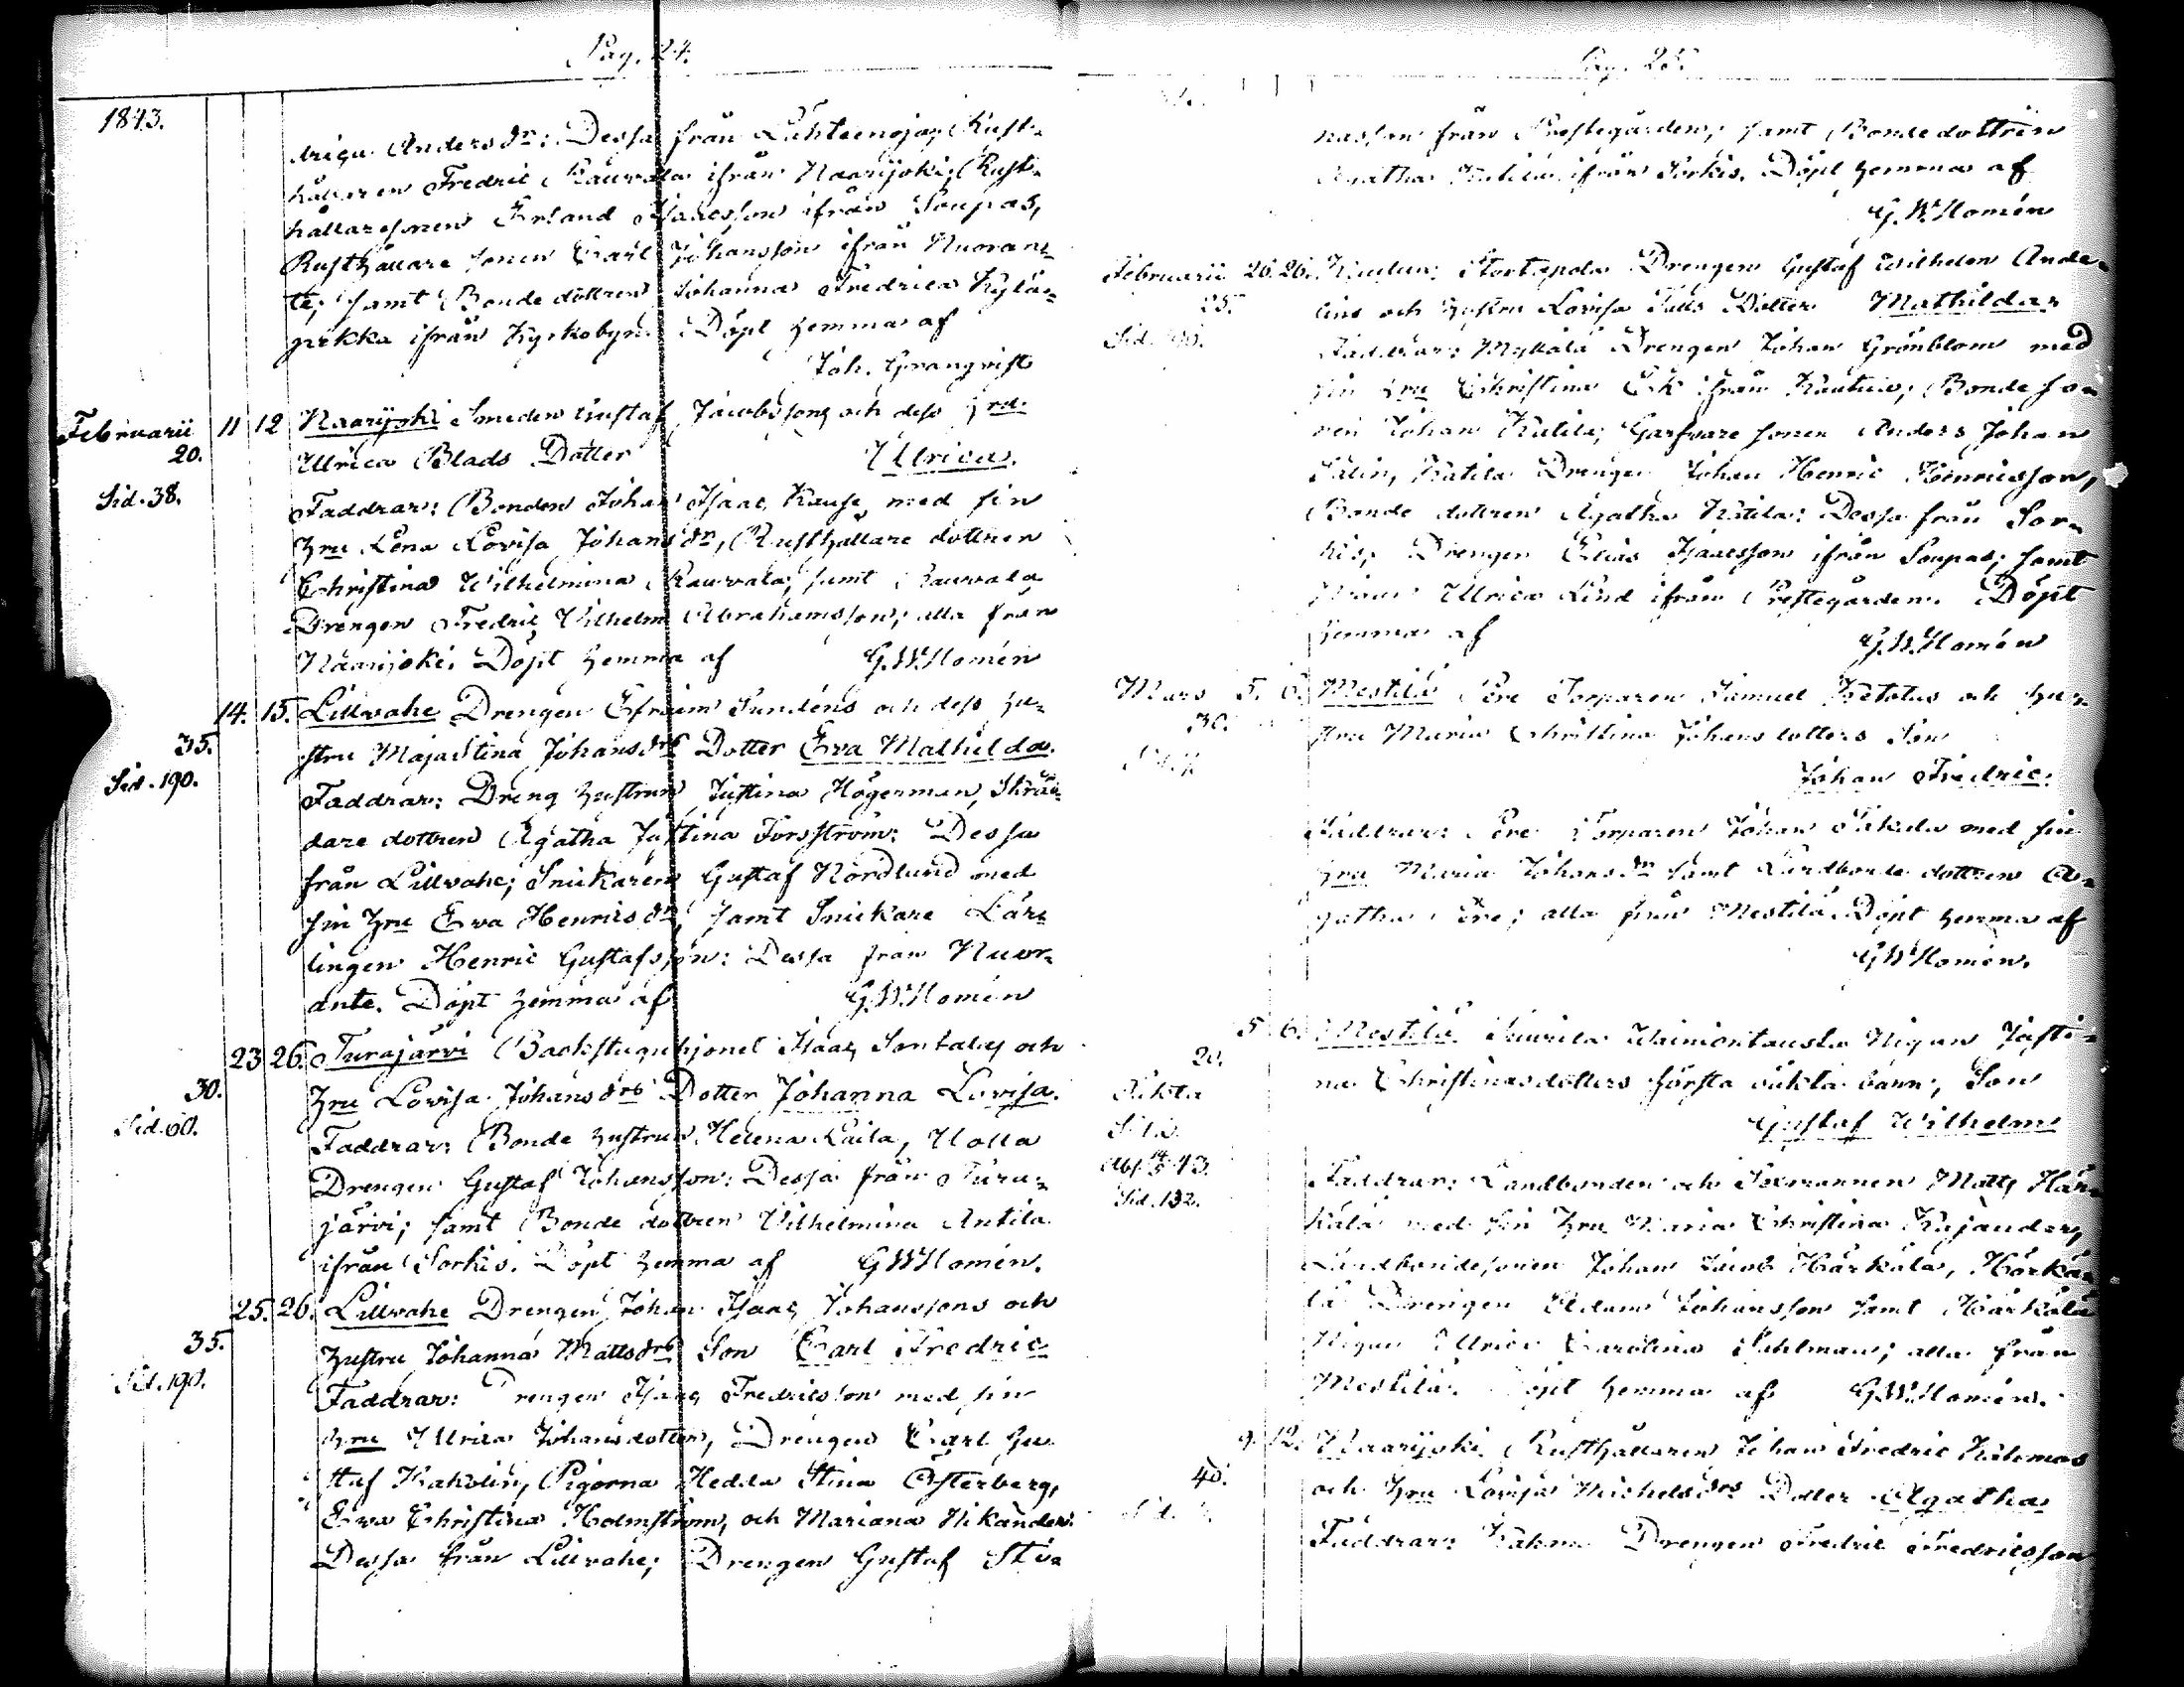 Pag. 24.
1843.
drica Andersdr: Dessa från Luhteenojag Rust-
hållaren Fredric Rauvala ifrån Naarijoki; Rust-
hållaresonen Erland Isaacsson ifrån Soupas,
Rusthållare sonen Carl Johansson ifrån Nuoran-
te; samt Bonde dottren Johanna Fredrica Kylä-
pekka ifrån Kyrkobyn. Döpt hemma af
Joh. Granqvist
Februarii 11 12 Naarijoki Smeden Gustaf Jacobssons och dess hru
20. Ulrica Blads Dotter Ulrica.
Sid. 38. Faddrar: Bonden Johan Isaac Kause, med sin
hru Lena Lovisa Johansdr, Rusthållare dottren
Christina Wilhelmina Rauvala; samt Rauvala
Drengen Fredric Vilhelm Abrahamsson; alla från
Naarijoki. Döpt hemma af G.W.Homén
14. 15. Lillvahe Drengen Efraim Sundéns och dess hu-
35. stru Maja Stina Johansdrs Dotter Eva Mathilda.
Sid. 190. Faddrar: Dreng hustrun Justina Högerman, Skräd-
dare dottren Agatha Justina Forsström: Dessa
från Lillvahe; Snickaren Gustaf Nordlund med
sin hru Eva Henricsdr, samt Snickare Lär-
lingen Henric Gustafsson: Dessa från Nuor-
ante. Döpt hemma af G.W.Homén
23 26. Turajärvi Backstuguhjonet Isaac Santalas och
30. hru Lovisa Johansdrs Dotter Johanna Lovisa.
Sid. 60. Faddrar: Bonde hustrun Helena Laila, Uolla
Drengen Gustaf Johansson: Dessa från Tura-
järvi; samt Bonde dottren Vilhelmina Antila
ifrån Sorkis. Döpt hemma af G.W.Homén.
25. 26. Lillvahe Drengen Johan Isaac Johanssons och
35. hustru Johanna Mattsdrs Son Carl Fredric
Sid. 190. Faddrar: Drengen Isaac Fredricsson med sin
hru Ulrica Johansdotter, Drengen Carl Gu-
staf Kakolin, Pigorna Hedda Stina Österberg,
Eva Christina Holmström, och Mariana Nikander:
Dessa från Lillvahe; Drengen Gustaf Sti-
Pag. 25.
nasson från Prestegården; samt Bondedottren
Agatha Katila ifrån Sorkis. Döpt hemma af
G.W.Homén
Februarii 26. 26. Stortapola Drengen Gustaf Wilhelm Ande-
25. lins och hustru Lovisa Dotter Mathilda
Sid. Faddrar: Mykälä Drengen Johan Grönblom med
sin hru Christina Ek ifrån Kautua; Bonde so-
nen Johan Katila; Garfvare sonen Anders Johan
Salin, Katila Drengen Johan Henric Henricsson,
Bonde dottren Agatha Katila: Dessa från Sor-
kis; Drengen Elias Isaacsson ifrån Soupas; samt
Ulrica Lind ifrån Prestegården. Döpt
hemma af G.W.Homén
Mars 5. 6. Mestilä Ere Torparen Samuel Ketolas och hu-
30. stru Maria Christina Johansdotters Son
Johan Fredric.
Faddrar: Ere Torparen Johan Sakala med sin
hru Maria Johansdr samt Landbonde dottren A-
gatha Ere; alla från Mestilä. Döpt hemma af
G.W.Homén.
5 6. Mestilä Pigan Justi-
20. na Christinasdotters första oäkta barn, Son
Oäkta Gustaf Wilhelm
Sid. 132. Faddrar: Landbonden och Sexmannen Matts Här-
kälä med sin hru Maria Christina Kajander,
Landbondesonen Johan Jacob Härkälä, Härkä-
lä Drengen Adam Johansson samt Härkälä
Pigan Ulrica Carolina Sahlman; alla från
Mestilä. Döpt hemma af G.W.Homén.
9. 12. Naarijoki Rusthållaren Johan Fredric
40. och hru Lovisa Michelsdrs Dotter Agatha
Faddrar: Drengen Fredric Fredricsson